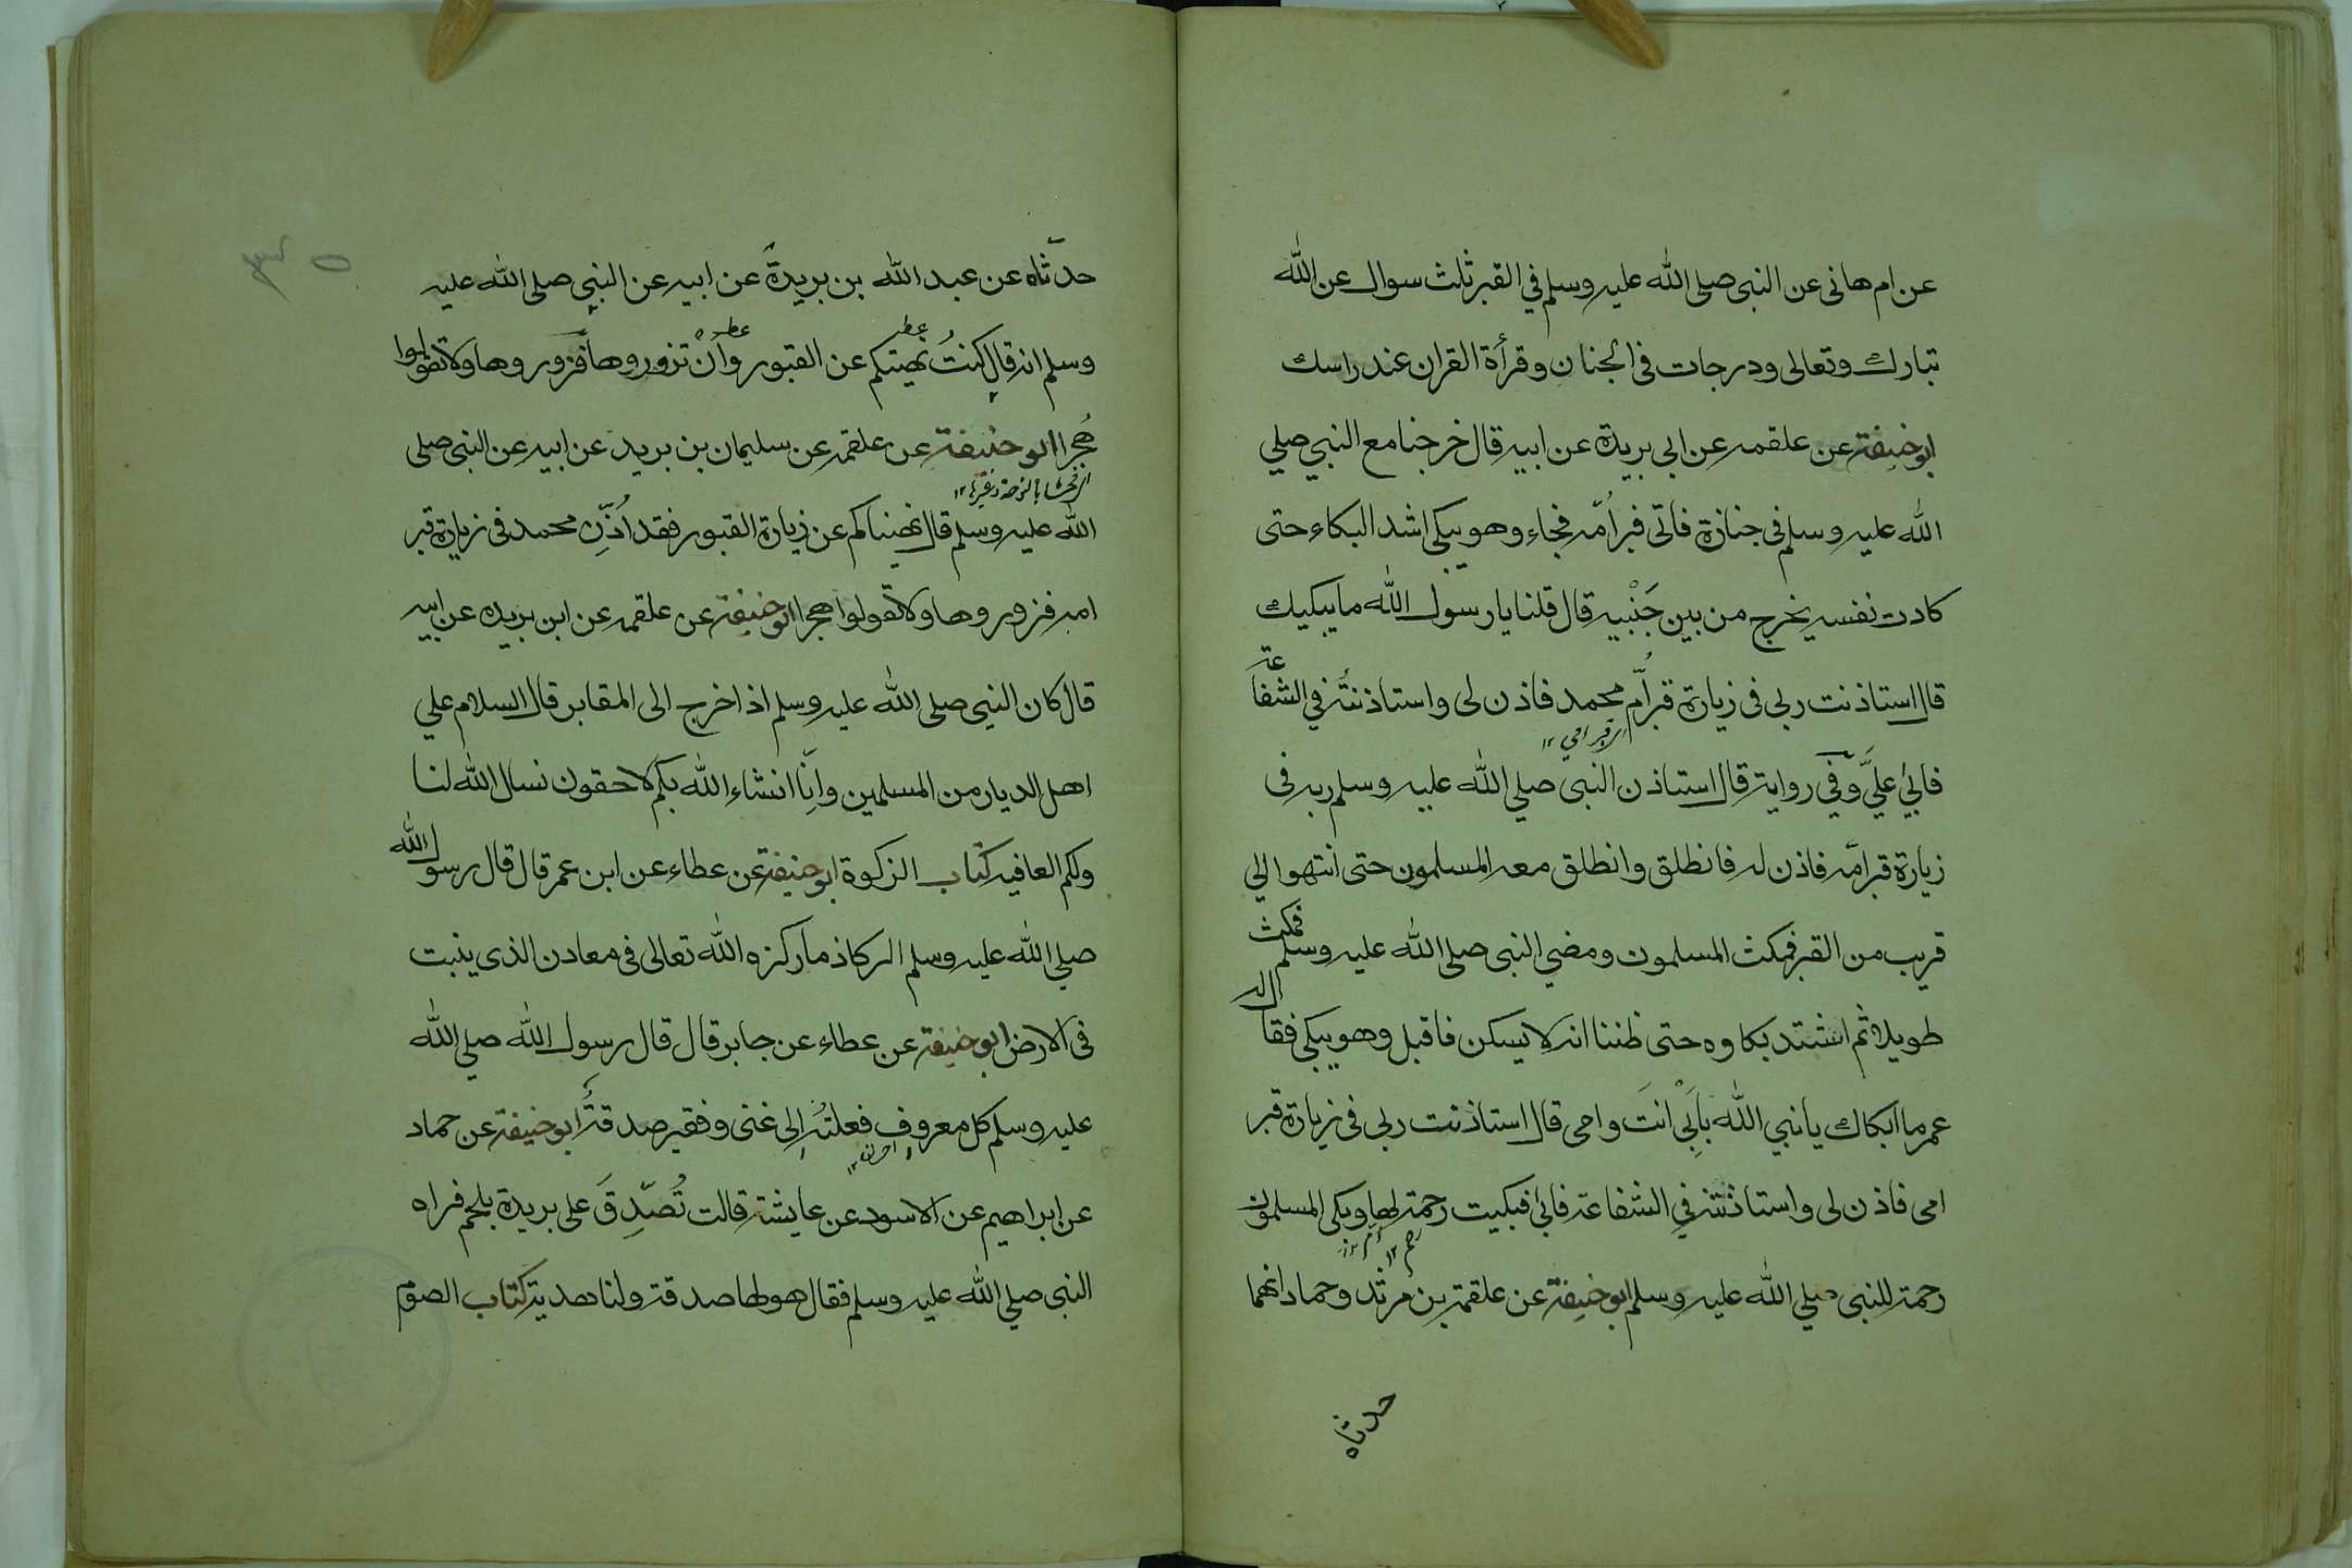 عن ام هانى عن النبى صلى الله عليه وسلم في القبر ثلث سوال عن الله
تبارك وتعالى ودرجات فى الجنان وقرأة القران عند راسك
ابو حنيفة عن علقمه عن ابى بريدة عن ابيه قال خرجنا مع النبي صلي
الله عليه وسلم فى جنازة فاتى قبر اُمّه فجاء وهو يبكى اشد البكاء حتى
كادت نفسه يخرج من بين جَنْبيه قال قلنا يا رسول الله ما يبكيك
قال استاذنت ربى فى زيارة قبر اُمّ محمد فاذن لى واستاذنتُه في الشفاعة
اى قبر امي ١٢
فابىٰ عليَّ وَفي رواية قال استاذن النبى صلي الله عليه وسلم ربه فى
زيارة قبر امّه فاذن له فانطلق وانطلق معه المسلمون حتى انتهوا الى
قريب من القبر فمكث المسلمون ومضي النبى صلى الله عليه وسلم فمكث
طويلا ثم اشتد بكاوه حتى ظننا انه لا يسكن فاقبل وهو يبكى فقال له
عمر ما ابكاك يا نبي الله بأَبِىْ انتَ وامى قال استاذنت ربى فى زيارة قبر
امى فاذن لى واستاذنته في الشفاعة فابىٰ فبكيت رحمة لها وبكى المسلمون
رحمة للنبى صلي الله عليه وسلم ابو حنيفة عن علقمة بن مرثد وحماد انهما
حدثاه
حدّثاه عن عبد الله بن بريدةَ عن ابيه عن النبي صلى الله عليه
وسلم انه قال كنتُ نهيتكم عن القبور وأَنْ تزوروها فزوروها ولا تقولوا
هُجرا ابو حنيفة عن علقمه عن سليمان بن بريدة عن ابيه عن النبى صلى
الله عليه وسلم قال نهيناكم عن زيارة القبور فقد اُذِّن محمد فى زيارة قبر
امه فزوروها ولا تقولوا هجرا ابو حنيفة عن علقمه عن ابن بريده عن ابيه
قال كان النبى صلى الله عليه وسلم اذا خرج الى المقابر قال السلام علي
اهل الديار من المسلمين وانّا انشاء الله بكم لاحقون نسال الله لنا
ولكم العافيه كتاب الزكوة ابو حنيفة عن عطاء عن ابن عمر قال قال رسول الله
صلي الله عليه وسلم الركاذ ما ركزه الله تعالى فى معادن الذى ينبت
فى الارض ابو حنيفة عن عطاء عن جابر قال قال رسول الله صلي الله
عليه وسلم كل معروفٍ فعلتُه إلى غنى وفقير صدقةٌ ابو حنيفة عن حماد
عن ابراهيم عن الاسود عن عايشة قالت تُصدِّقَ على بريدة بلحم فراه
النبى صلي الله عليه وسلم فقال هو لها صدقة ولنا هدية كتاب الصوم